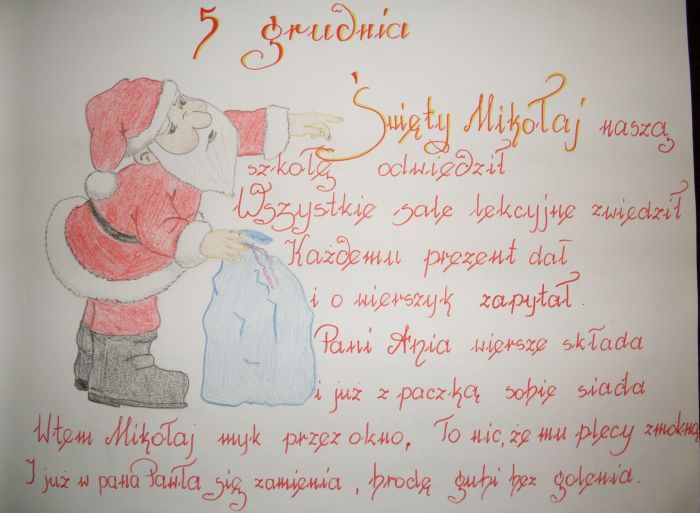 5 grudnia
Święty Mikołaj naszą
szkołę odwiedził
Wszystkie sale lekcyjne zwiedził
Każdemu prezent dał
i o wierszyk zapytał.
Pani Ania wiersze składa
i już z paczką sobie siada
Wtem Mikołaj myk przez okno. To nic, że mu plecy zmokną
I już w pana Pawła się zamienia, brodę gubi bez golenia.